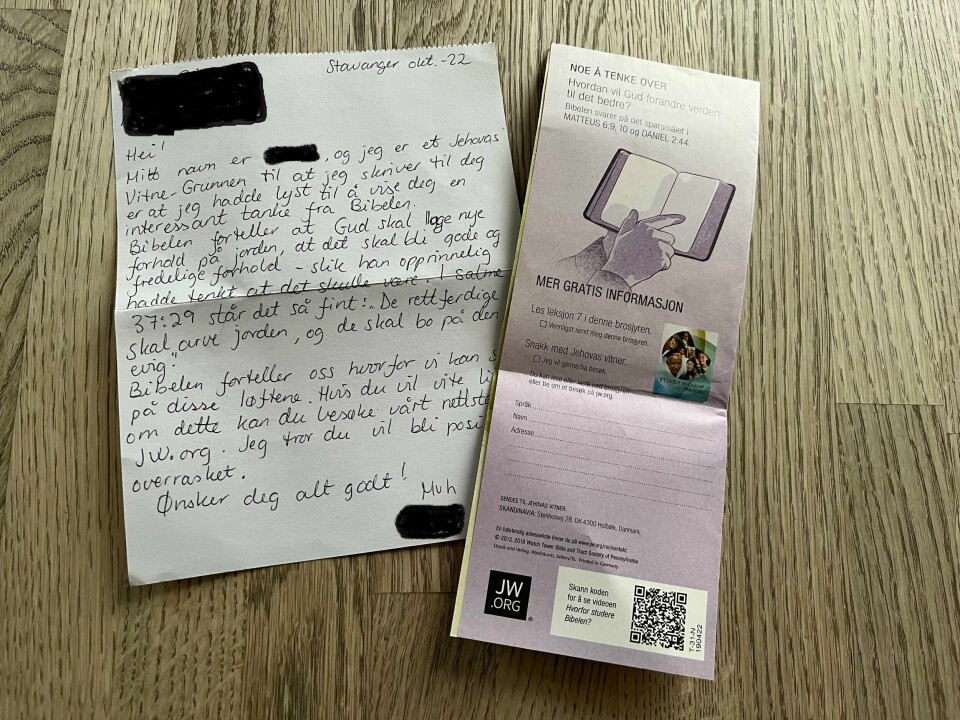 Stavanger okt. -22
Hei!
Mitt navn er , og jeg er et Jehovas
Vitne - Grunnen til at jeg skriver til deg
er at jeg hadde lyst til å vise deg en
interessant tanke fra Bibelen.
Bibelen forteller at Gud skal lage nye
forhold på jorden, at det skal bli gode og
fredelige forhold - slik han opprinnelig
hadde tenkt at det skulle være. I Salme
37:29 står det så fint: „De rettferdige
skal arve jorden, og de skal bo på den
evig."
Bibelen forteller oss hvorfor vi kan s
på disse løftene. Hvis du vil vite li
om dette kan du besøke vårt nettste
JW.org. Jeg tror du vil bli posi
overrasket.
Ønsker deg alt godt!
Mvh
NOE Å TENKE OVER
Hvordan vil Gud forandre verden
til det bedre?
Bibelen svarer på det spørsmålet i
MATTEUS 6:9, 10 og DANIEL 2:44.
MER GRATIS INFORMASJON
Les leksjon 7 i denne brosjyren.
Vennligst send meg denne brosjyren.
Snakk med Jehovas vitner.
Jeg vil gjerne ha besøk.
Du kan lese eller laste ned brosjyren
eller be om et besøk på jw.org.
Språk
Navn
Adresse
SENDES TIL JEHOVAS VITNER:
SKANDINAVIA: Stenhusvej 28, DK-4300 Holbæk, Danmark.
En fullstendig adresseliste finner du på www.jw.org/no/kontakt.
© 2013, 2018 Watch Tower Bible and Tract Society of Pennsylvania
Druck und Verlag: Wachtturm, Selters/Ts. Printed in Germany
JW
.ORG
®
Skann koden
for å se videoen
Hvorfor studere
Bibelen?
T-31-N
190422